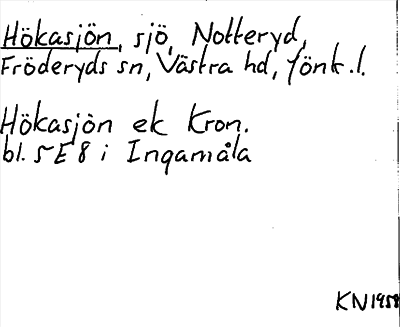 Hökasjön, sjö, Notteryd,
Fröderyds sn, Västra hd, Jönk.l.
Hökasjön ek Kron.
bl. 5 E 8 i Ingamåla
KN 1958